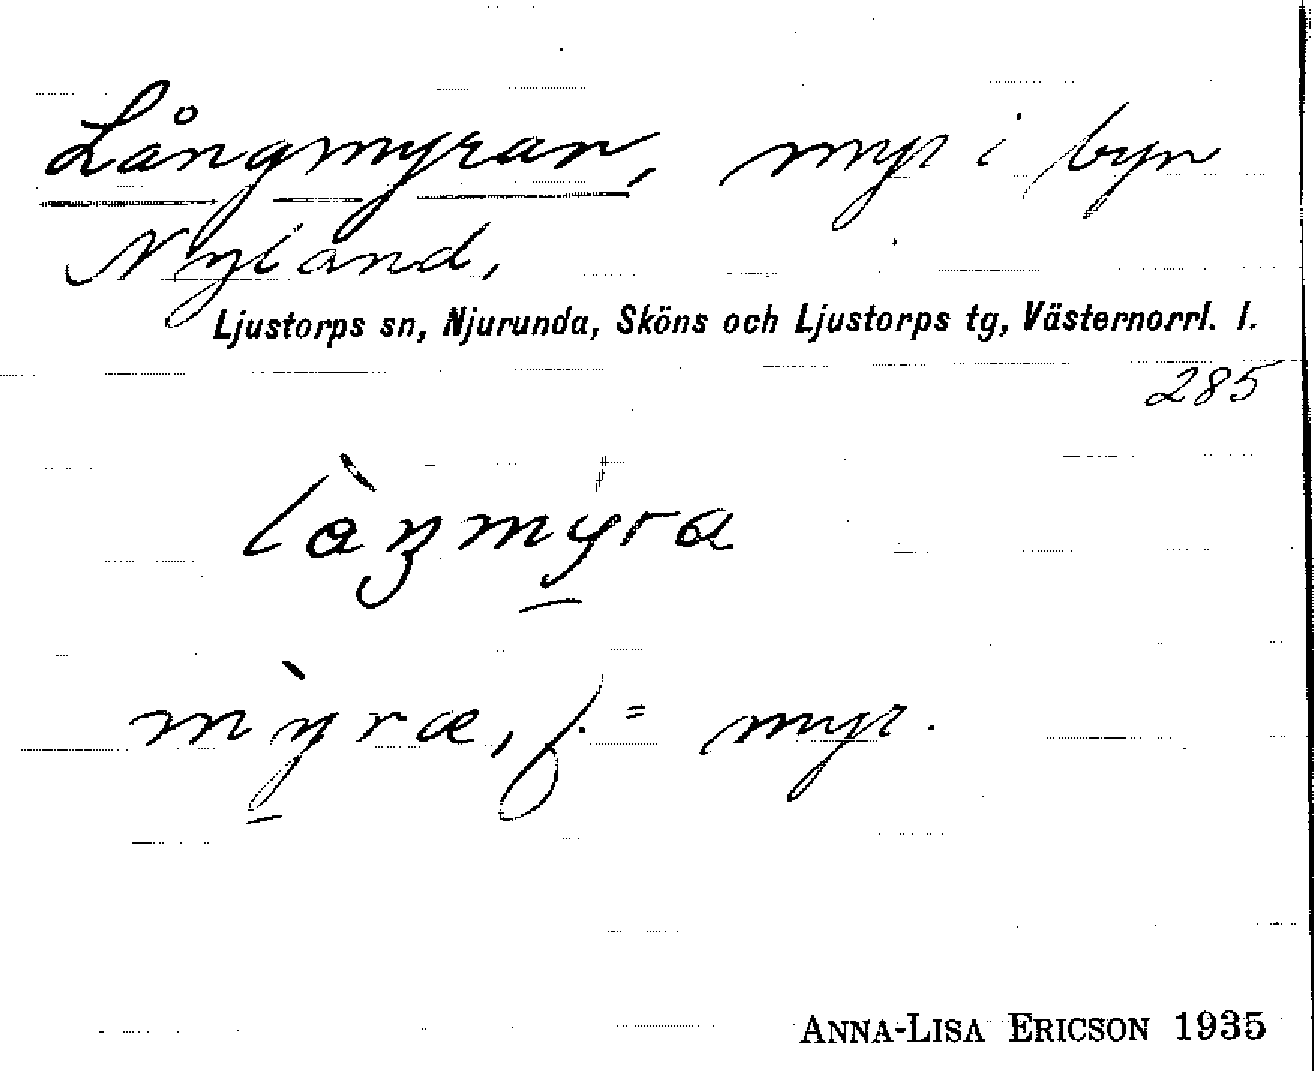 Långmyran, myr i byn
Nyland,
Ljustorps sn, Njurunda, Sköns och Ljustorps tg, Västernorrl. l.
285
làŋmyra
mỳræ, f. = myr.
ANNA-LISA ERICSON 1935